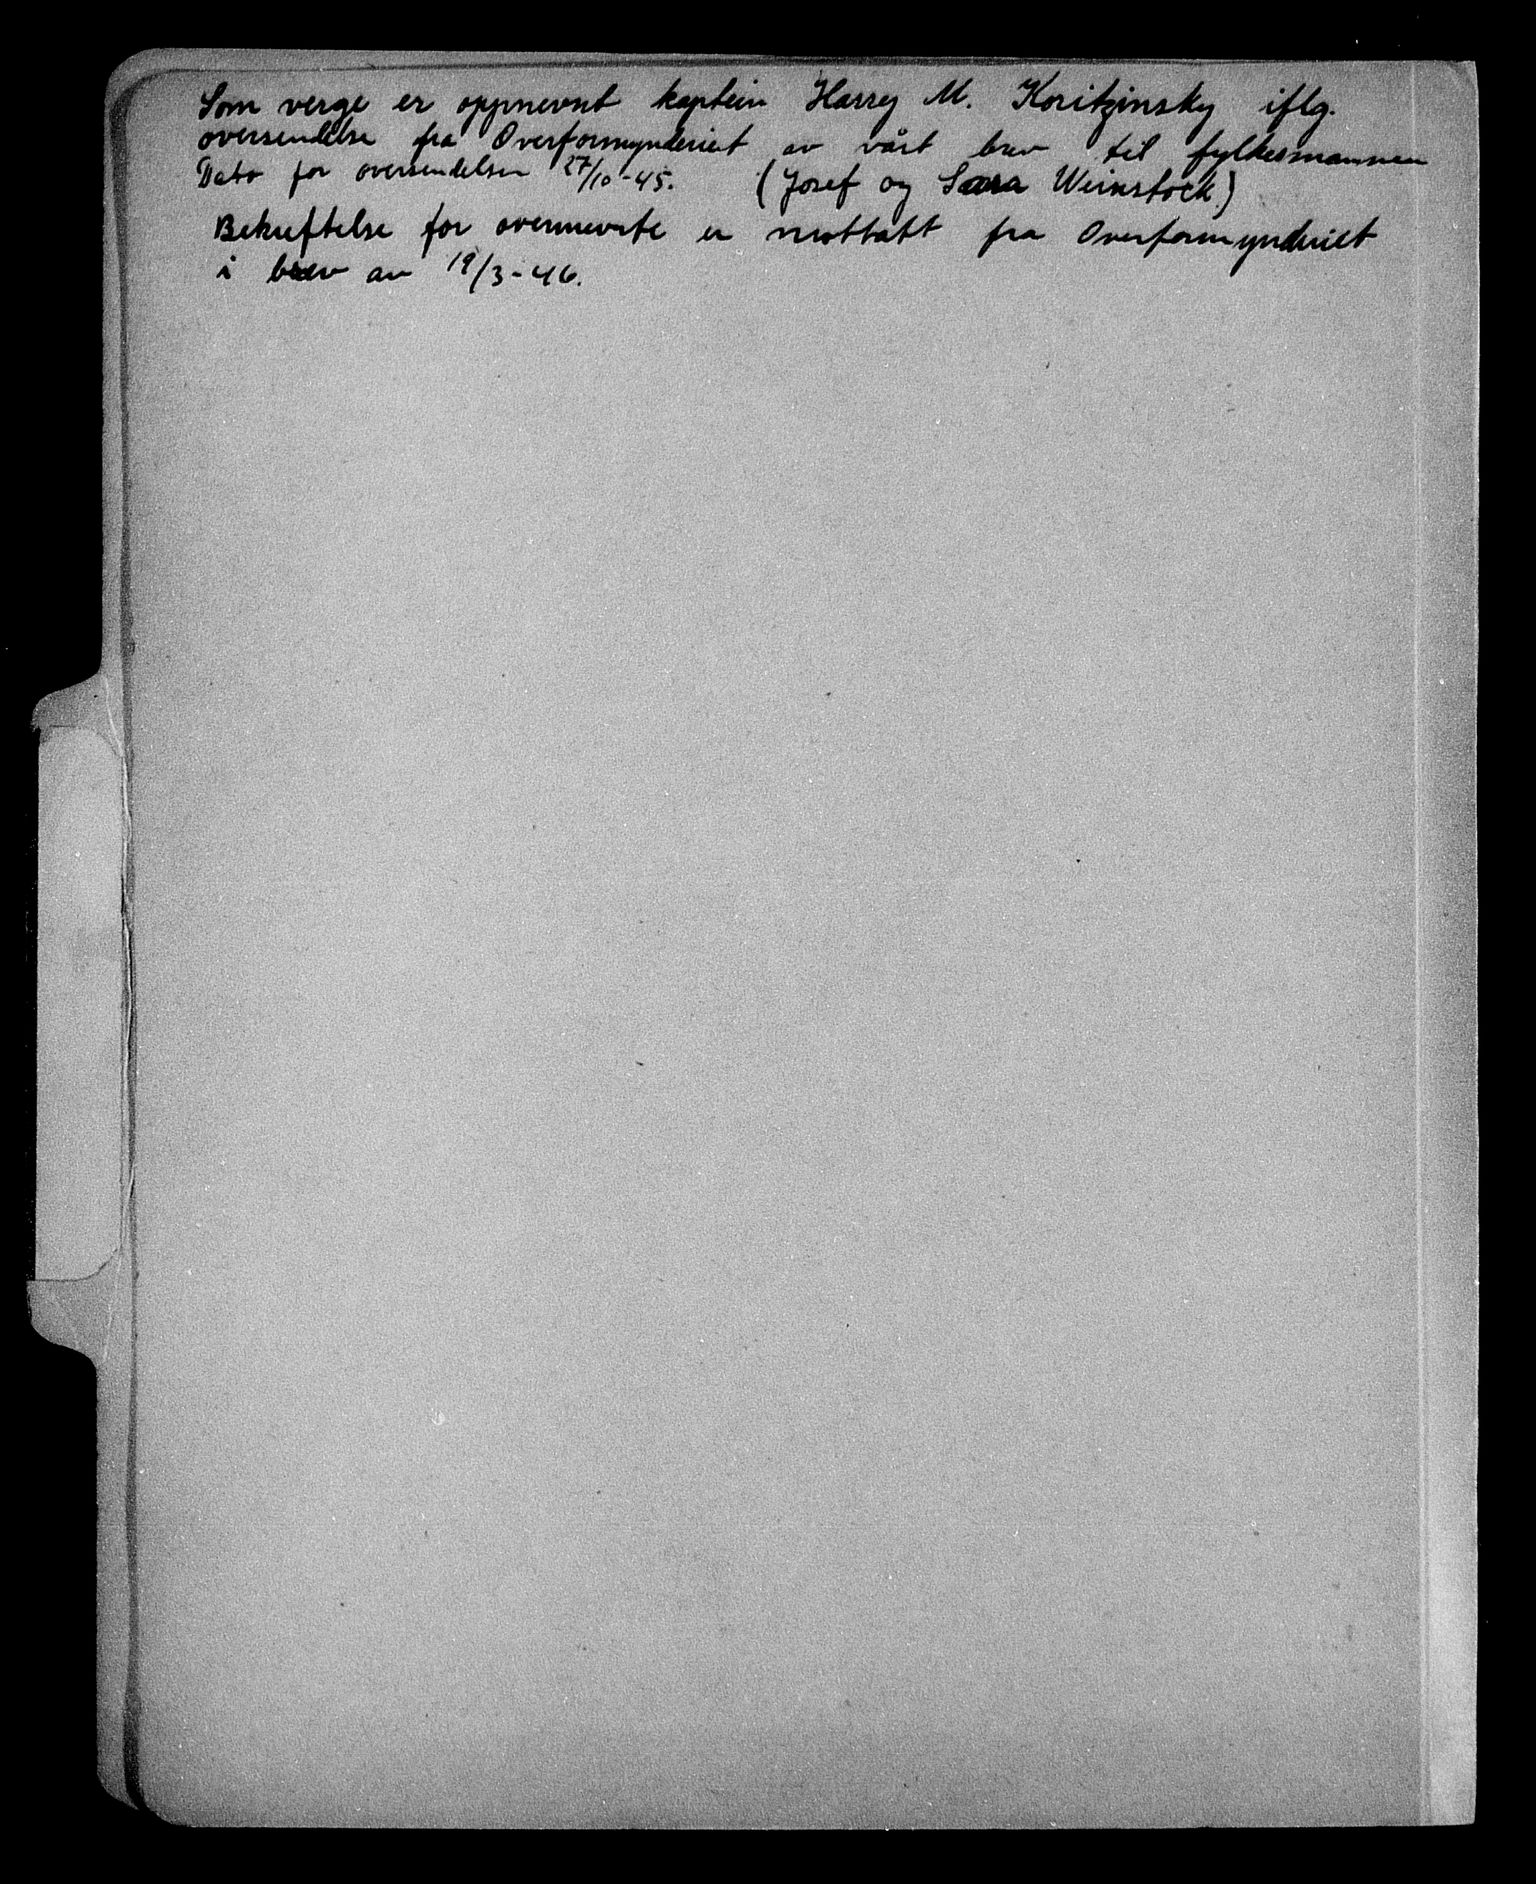 Som verge er oppnevnt kaptein Harry M. Koritzinsky iflg.
oversendelse fra Overformynderiet av vårt brev til fylkesmannen
Dato for oversendelsen 27/10-45. (Josef og Sara Weinstock)
Bekreftelse for ovennevnte er mottatt fra Overformynderiet
i brev av 19/3-46.